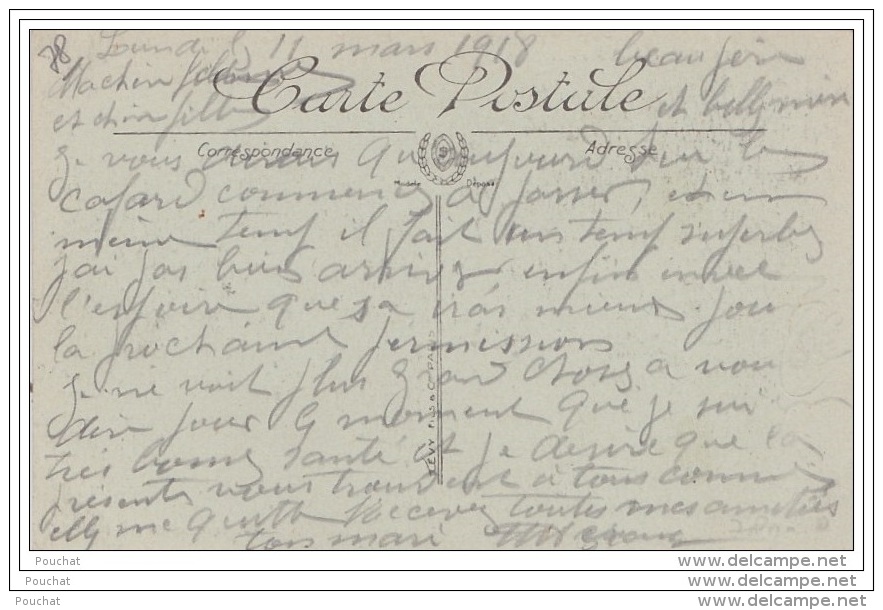 78
Lundi le 11 mars 1918
beau père
Ma chère
et chère fille
et belle mère
Carte Postale
Correspondance
Adresse
Modèle Déposé
je vous qu'aujourd'hui le
cafard commence a passer, et en
même temp il fait un temp superbe
j'ai pas bien arriver enfin avec
l'espoire que sa iras mieux pour
la prochaine permission
je ne voit plus grand chose a vou
dire pour le moment que je sui
très bonne santé et je desire que la
présente vous trouvent à tous comme
elle me quitte Recevez toutes mes amitiés
ton mari
LEVY FILS & C PARIS
Pouchat
Pouchat
Pouchat
www.delcampe.net
www.delcampe.net
www.delcampe.net